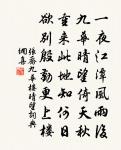 一夜江潭風雨後
九華晴望倚天秋
重來此地知何日
欲別殷勤更上樓
張喬九華樓晴望詞典
網喜